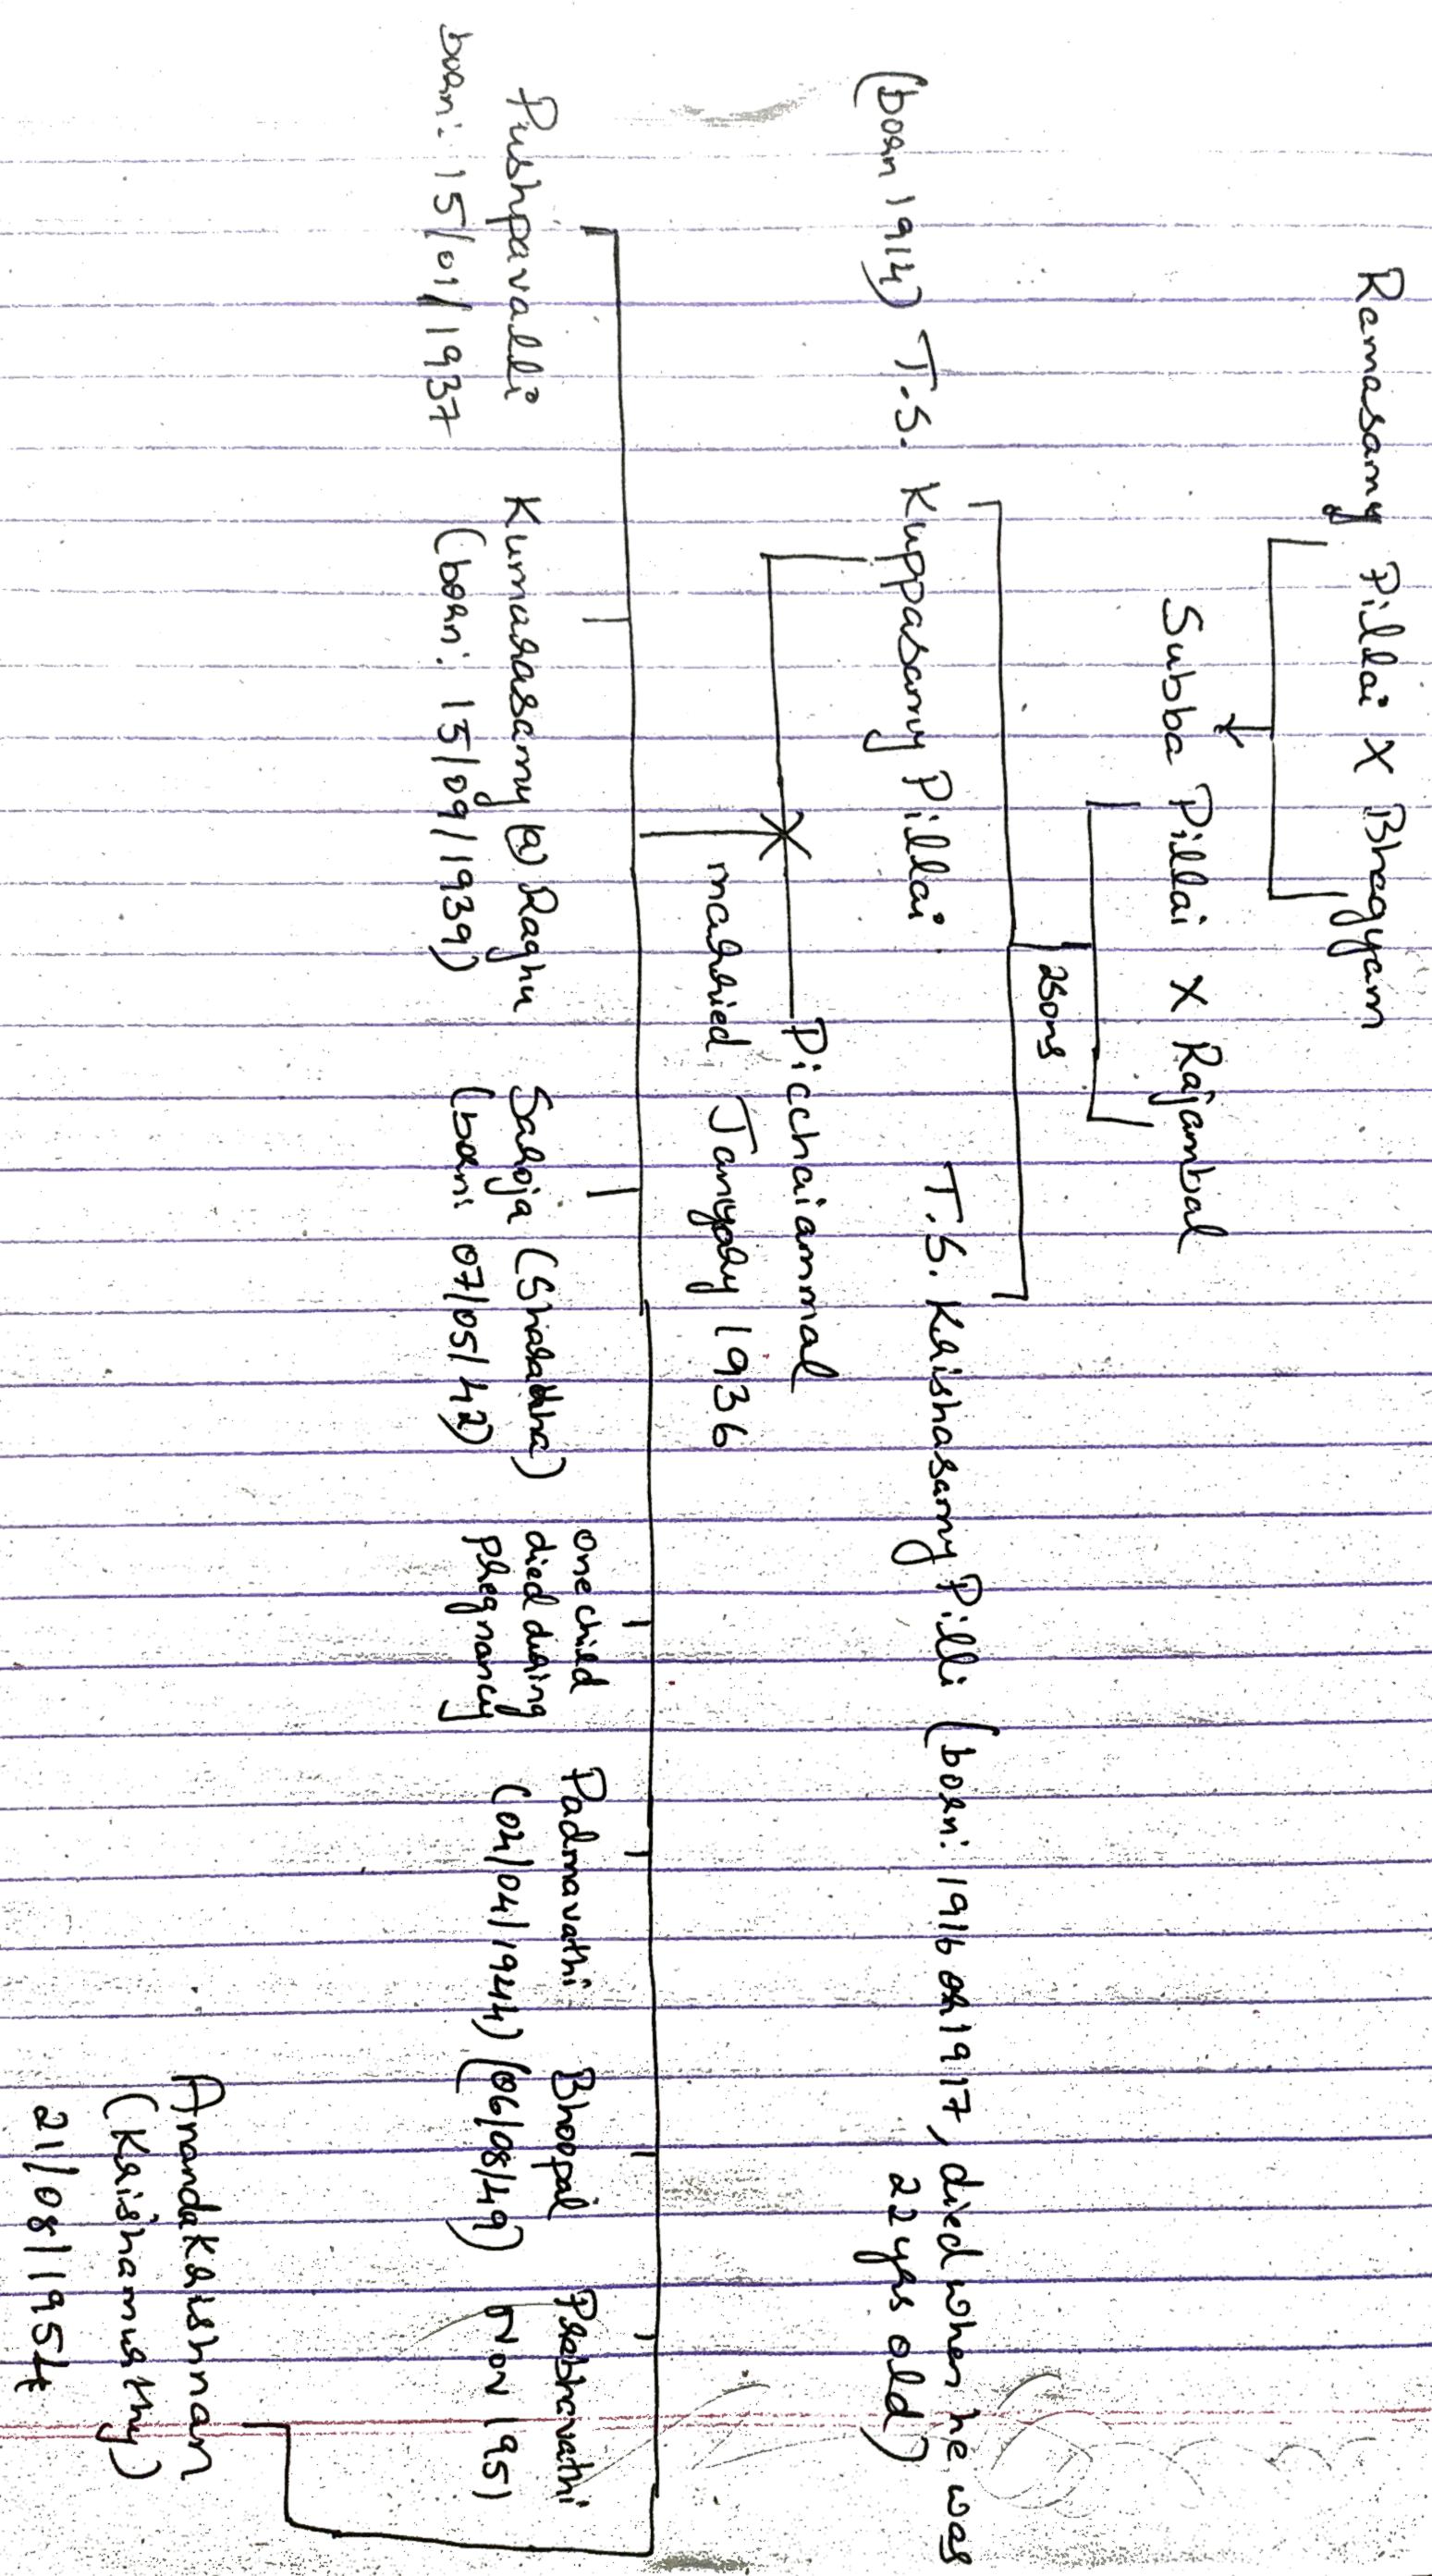 Ramasamy Pillai X Bhagyam
Subba Pillai X Rajambal
2sons
(born 1914) T.S. Kuppasamy Pillai.
T.S. Krishasamy Pilli (born: 1916 or 1917, died when he was
22 yrs old)
X
Picchaiammal
married January 1936
Pushpavalli
born: 15/01/1937
Kumarasamy (a) Raghu
(born: 15/09/1939)
Saroja (Sharadha)
(born: 07/05/42)
one child
died during
pregnancy
Padmavathi
(04/04/1944)
Bhoopal
(06/08/49)
Prabhavathi
Nov 1951
Anandakrishnan
(Krishamurthy)
21/08/1954